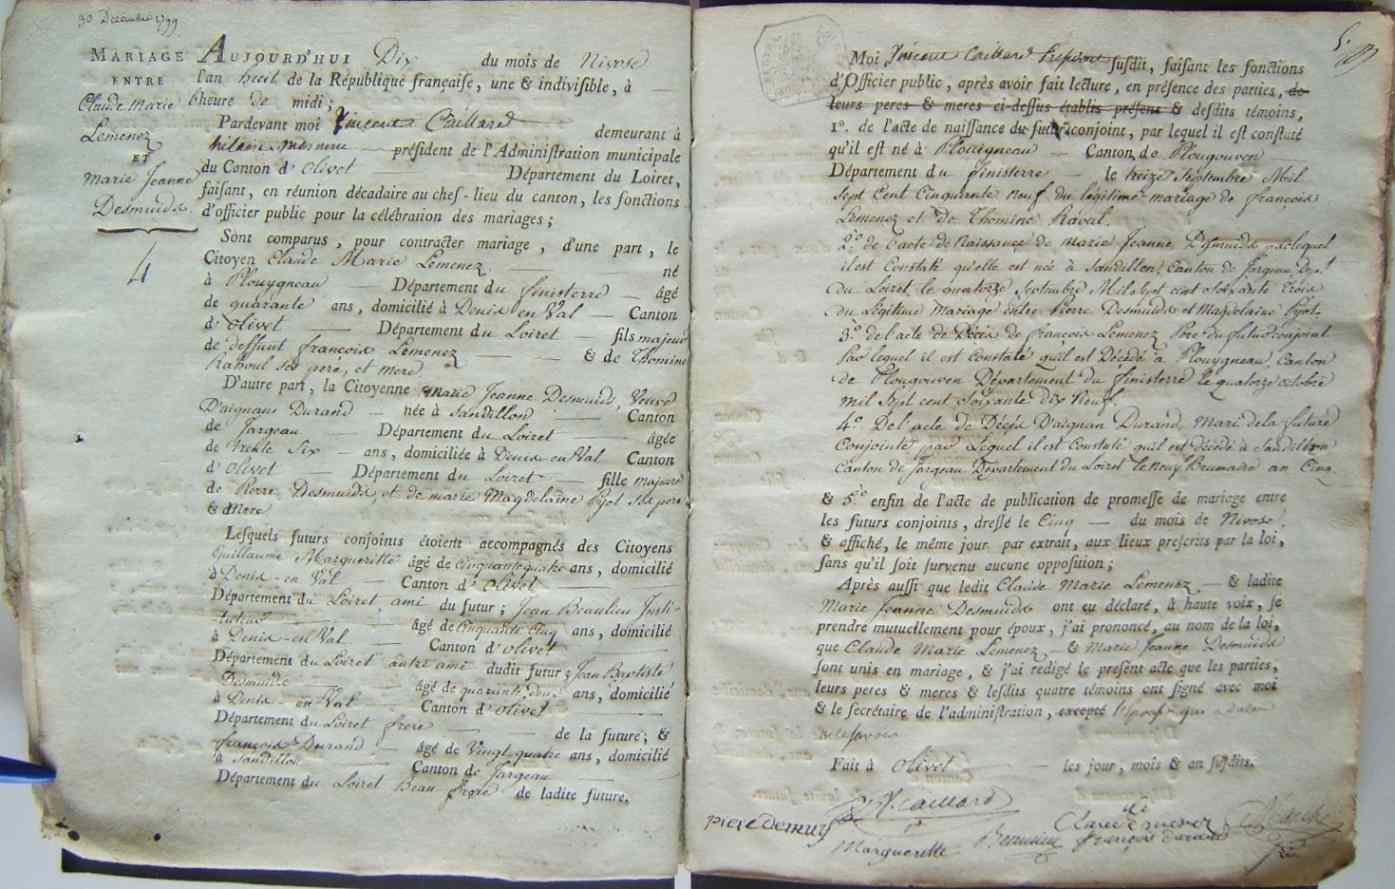 30 Decembre 1799
MARIAGE
ENTRE
Claude Marie
Lemenez
ET
Marie Jeanne
Desmuids
4
AUJOURD'HUI Dix du mois de Nivose
l'an huit de la République françaife, une & indivifible, à
heure de midi;
Pardevant moi Vincent Caillard demeurant à
préfident de l'Adminiftration municipale
du Canton d'Olivet Département du Loiret,
faifant, en réunion décadaire au chef-lieu du canton, les fonctions
d'officier public pour la célébration des mariages;
Sont comparus, pour contracter mariage, d'une part, le
Citoyen Claude Marie Lemenez né
à Plouygneau Département du finisterre âgé
de quarante ans, domicilié à Denis en Val Canton
d'Olivet Département du Loiret fils majeur
de deffunt françois Lemenez & de Thomine
Raboul ses pere, et mere
D'autre part, la Citoyenne Marie Jeanne Desmuids, Veuve
D'aignan Durand née à Sandillon Canton
de Jargeau Département du Loiret âgée
de trente Six ans, domiciliée à Denis en Val Canton
d'Olivet Département du Loiret fille majeure
de Pierre Desmuids, et de marie Magdelaine Pijol ses pere
& Mere
Lefquels futurs conjoints étoient accompagnés des Citoyens
Guillaume Margueritte âgé de cinquante quatre ans, domicilié
à Denis-en Val Canton d'Olivet
Département du Loiret, ami du futur; Jean Beaulieu Insti-
tuteur âgé de Cinquante Cinq ans, domicilié
à Denis-en Val Canton d'olivet
Département du Loiret autre ami dudit futur; Jean Baptiste
Desmuids âgé de quarante deux ans, domicilié
à Denis-en Val Canton d'olivet
Département du Loiret frere de la future; &
françois Durand âgé de Vingt quatre ans, domicilié
à Sandillon Canton de Jargeau
Département du Loiret Beau frere de ladite future.
Moi Vincent Caillard Président fufdit, faifant les fonctions
d'Officier public, après avoir fait lecture, en préfence des parties, de
leurs peres & meres ci-deffus établis préfens & defdits témoins,
1°. de l'acte de naiffance du futur conjoint, par lequel il eft conftaté
qu'il eft né à Plouigneau Canton de Plougouven
Département du finisterre le treize Septembre Mil
Sept Cent Cinquante Neuf du légitime mariage de françois
Lemenez et de Thomine Raoul.
2°. de l'acte de Naissance de Marie Jeanne Desmuids par lequel
il est Constaté qu'elle est née à Sandillon, Canton de Jargeau, Dept
du Loiret, le quatorze Septembre Mil Sept cent soixante trois
du Légitime Mariage d'entre Pierre Desmuids et Magdelaine Pijol.
3°. de l'acte de Décès de françois Lemenez Pere du futur conjoint
par lequel il est Constaté qu'il est Décédé à Plouygneau, Canton
de Plougouven Département du finisterre le quatorze octobre
mil Sept cent Soixante dix Neuf.
4°. De l'acte de Décès D'aignan Durand, Mari de la future
Conjointe par lequel il est Constaté qu'il est décédé à Sandillon
Canton de Jargeau Département du Loiret le neuf Brumaire an Cinq
& 5.° enfin de l'acte de publication de promeffe de mariage entre
les futurs conjoints, dreffé le Cinq du mois de Nivose,
& affiché, le même jour par extrait, aux lieux prefcrits par la loi,
fans qu'il foit furvenu aucune oppofition;
Après auffi que ledit Claude Marie Lemenez & ladite
Marie Jeanne Desmuids ont eu déclaré, à haute voix, fe
prendre mutuellement pour époux, j'ai prononcé, au nom de la loi,
que Claude Marie Lemenez & Marie Jeanne Desmuids
font unis en mariage, & j'ai rédigé le préfent acte que les parties,
leurs peres & meres & lefdits quatre témoins ont figné avec moi
& le fecrétaire de l'adminiftration, excepté l'épouse qui a déclaré
ne le savoir
Fait à Olivet les jour, mois & an fufdits.
V. Caillard
pierre demuys
Margueritte
Beaulieu
Claude Lemenez
françois durand